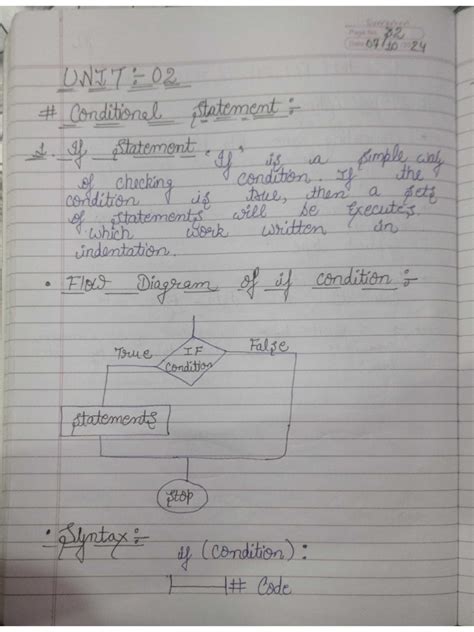 Page No. 32
Date 07/10 24
UNIT :- 02
# Conditionel Statement :-
1. If Statement. "If" is a simple way
of checking condition. If the
condition is true, then a sets
of statements will be executes.
which work written in
indentation.
• Flow Diagram of if condition :-
True IF False
condition
Statements
Stop
• Syntax :-
if (condition) :
# Code